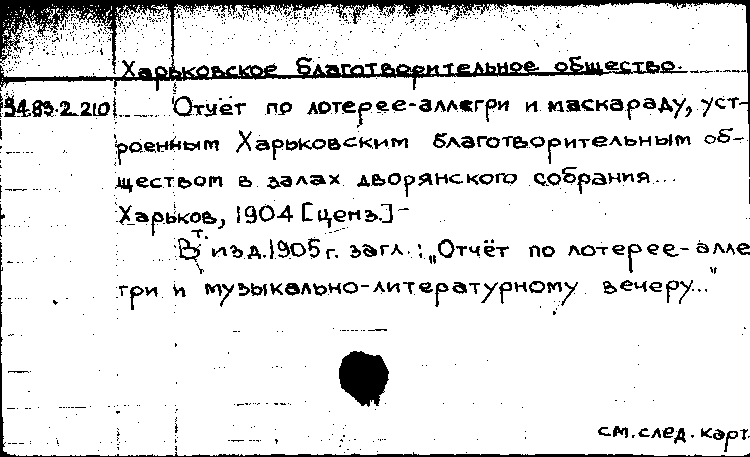 Харьковское благотворительное общество.
34.83.2.210 Отчет по лотерее-аллегри и маскараду, уст-
роенным Харьковским благотворительным об-
ществом в залах дворянского собрания...
Харьков, 1904 [ценз.]-
В т. изд. 1905 г. загл.: „Отчёт по лотерее-алле
гри и музыкально-литературному вечеру..."
см. след. карт.